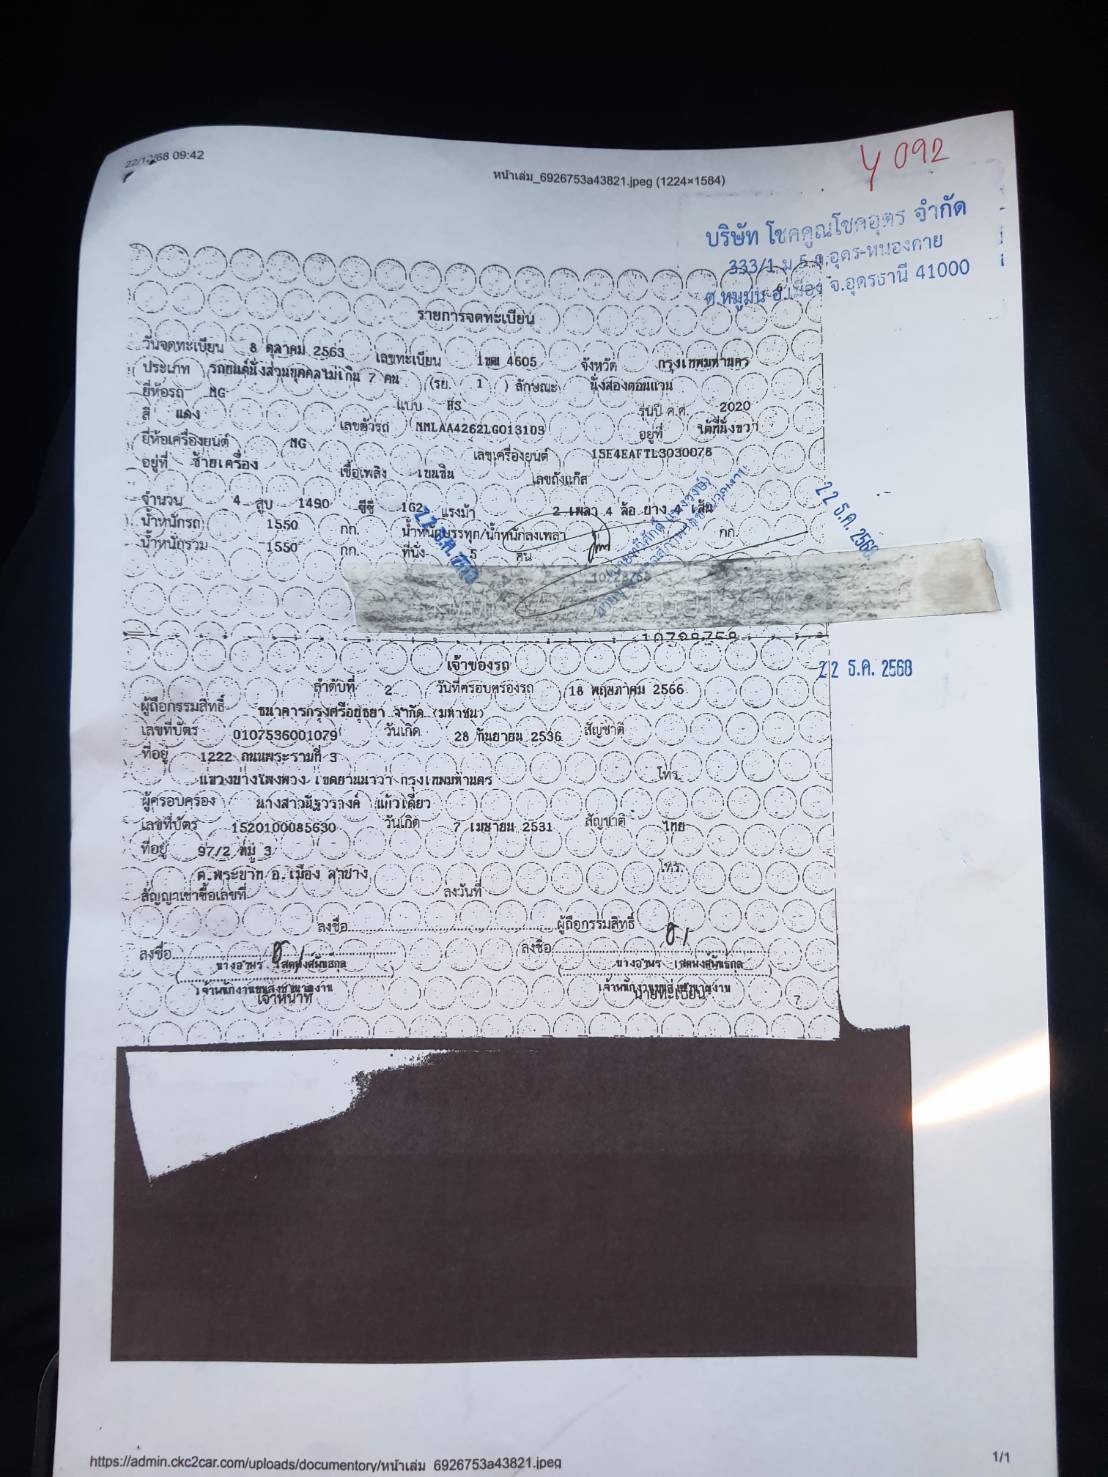 22/12/68 09:42
หน้าเล่ม_6926753a43821.jpeg (1224×1584)
y 092
บริษัท โชคคูณโชคอุดร จำกัด
333/1 ม.5 ถ.อุดร-หนองคาย
ต.หมูม่น อ.เมือง จ.อุดรธานี 41000
รายการจดทะเบียน
วันจดทะเบียน 8 ตุลาคม 2563 เลขทะเบียน 4605 จังหวัด กรุงเทพมหานคร
ประเภท รถยนต์นั่งส่วนบุคคลไม่เกิน 7 คน (รย. 1 ) ลักษณะ นั่งสองตอนแวน
ยี่ห้อรถ MG แบบ HS รุ่นปี ค.ศ. 2020
สี แดง เลขตัวรถ MMLAA4262LG013103 อยู่ที่ ใต้ที่นั่งขวา
ยี่ห้อเครื่องยนต์ MG เลขเครื่องยนต์ 15E4EAFTL3030078
อยู่ที่ ซ้ายเครื่อง เชื้อเพลิง เบนซิน เลขถังแก๊ส
จำนวน 4 สูบ 1490 ซีซี 162 แรงม้า 2 เพลา 4 ล้อ ยาง 4 เส้น
น้ำหนักรถ 1550 กก. น้ำหนักบรรทุก/น้ำหนักลงเพลา กก.
น้ำหนักรวม 1550 กก. ที่นั่ง 5 คน
22 ธ.ค. 2568
22 ธ.ค. 2568
10798759
เจ้าของรถ
22 ธ.ค. 2568
ลำดับที่ 2 วันที่ครอบครองรถ 18 พฤษภาคม 2566
ผู้ถือกรรมสิทธิ์ ธนาคารกรุงศรีอยุธยา จำกัด (มหาชน)
เลขที่บัตร 0107536001079 วันเกิด 28 กันยายน 2536 สัญชาติ
ที่อยู่ 1222 ถนนพระรามที่ 3
แขวงบางโพงพาง เขตยานนาวา กรุงเทพมหานคร โทร.
ผู้ครอบครอง นางสาวณัฐวรางค์ แก้วเดียว
เลขที่บัตร 1520100085630 วันเกิด 7 เมษายน 2531 สัญชาติ ไทย
ที่อยู่ 97/2 หมู่ 3
ต.พระบาท อ.เมือง ลำปาง โทร.
สัญญาเช่าซื้อเลขที่ ลงวันที่
ลงชื่อ ผู้ถือกรรมสิทธิ์
ลงชื่อ ลงชื่อ
เจ้าหน้าที่ นายทะเบียน
7
https://admin.ckc2car.com/uploads/documentory/หน้าเล่ม_6926753a43821.jpeg 1/1